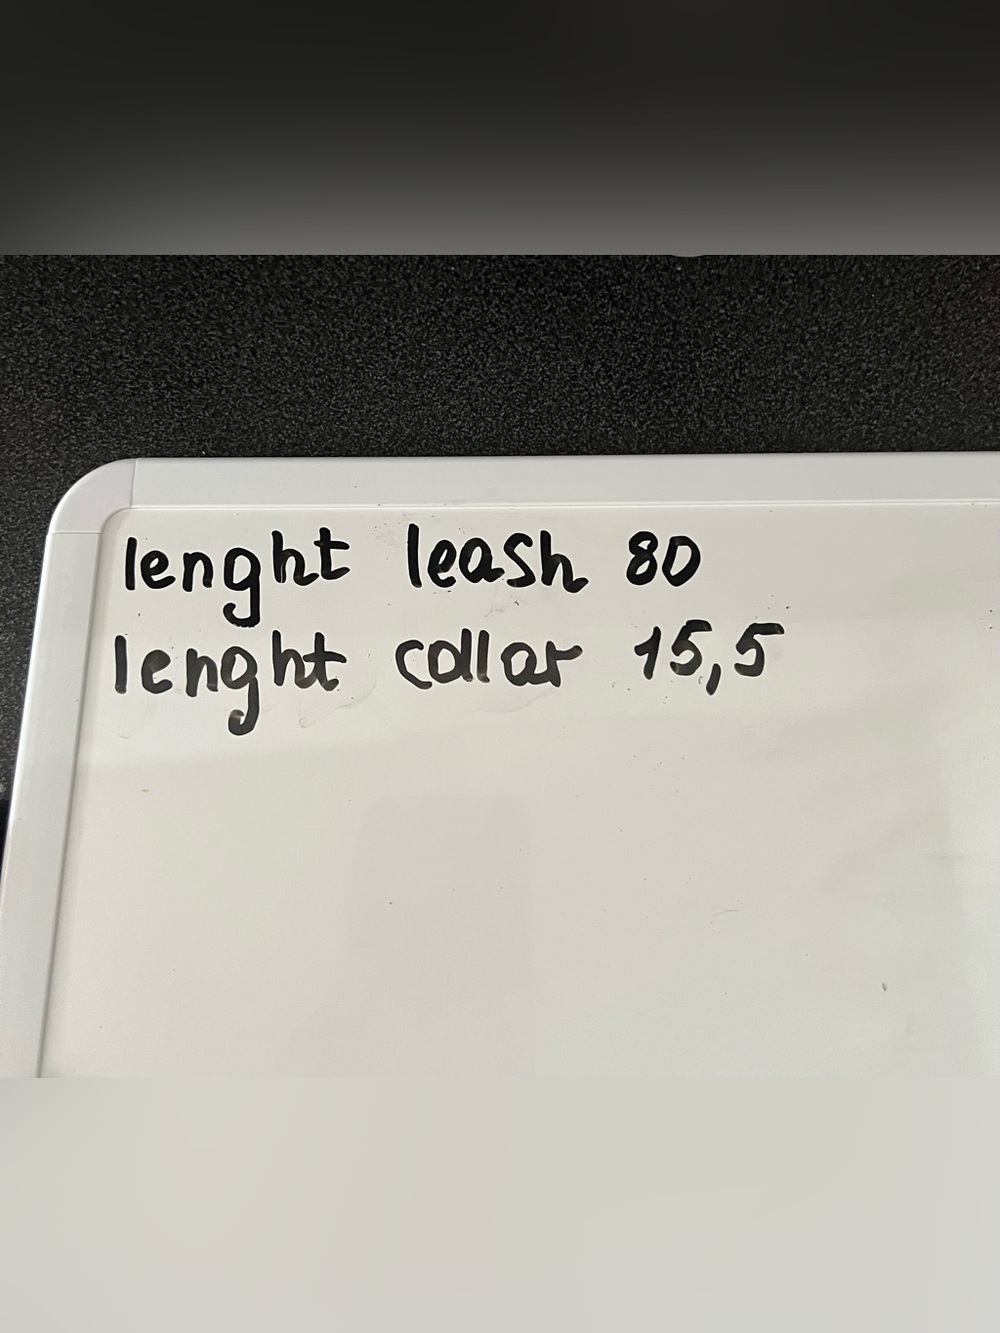 lenght leash 80
lenght collar 15,5